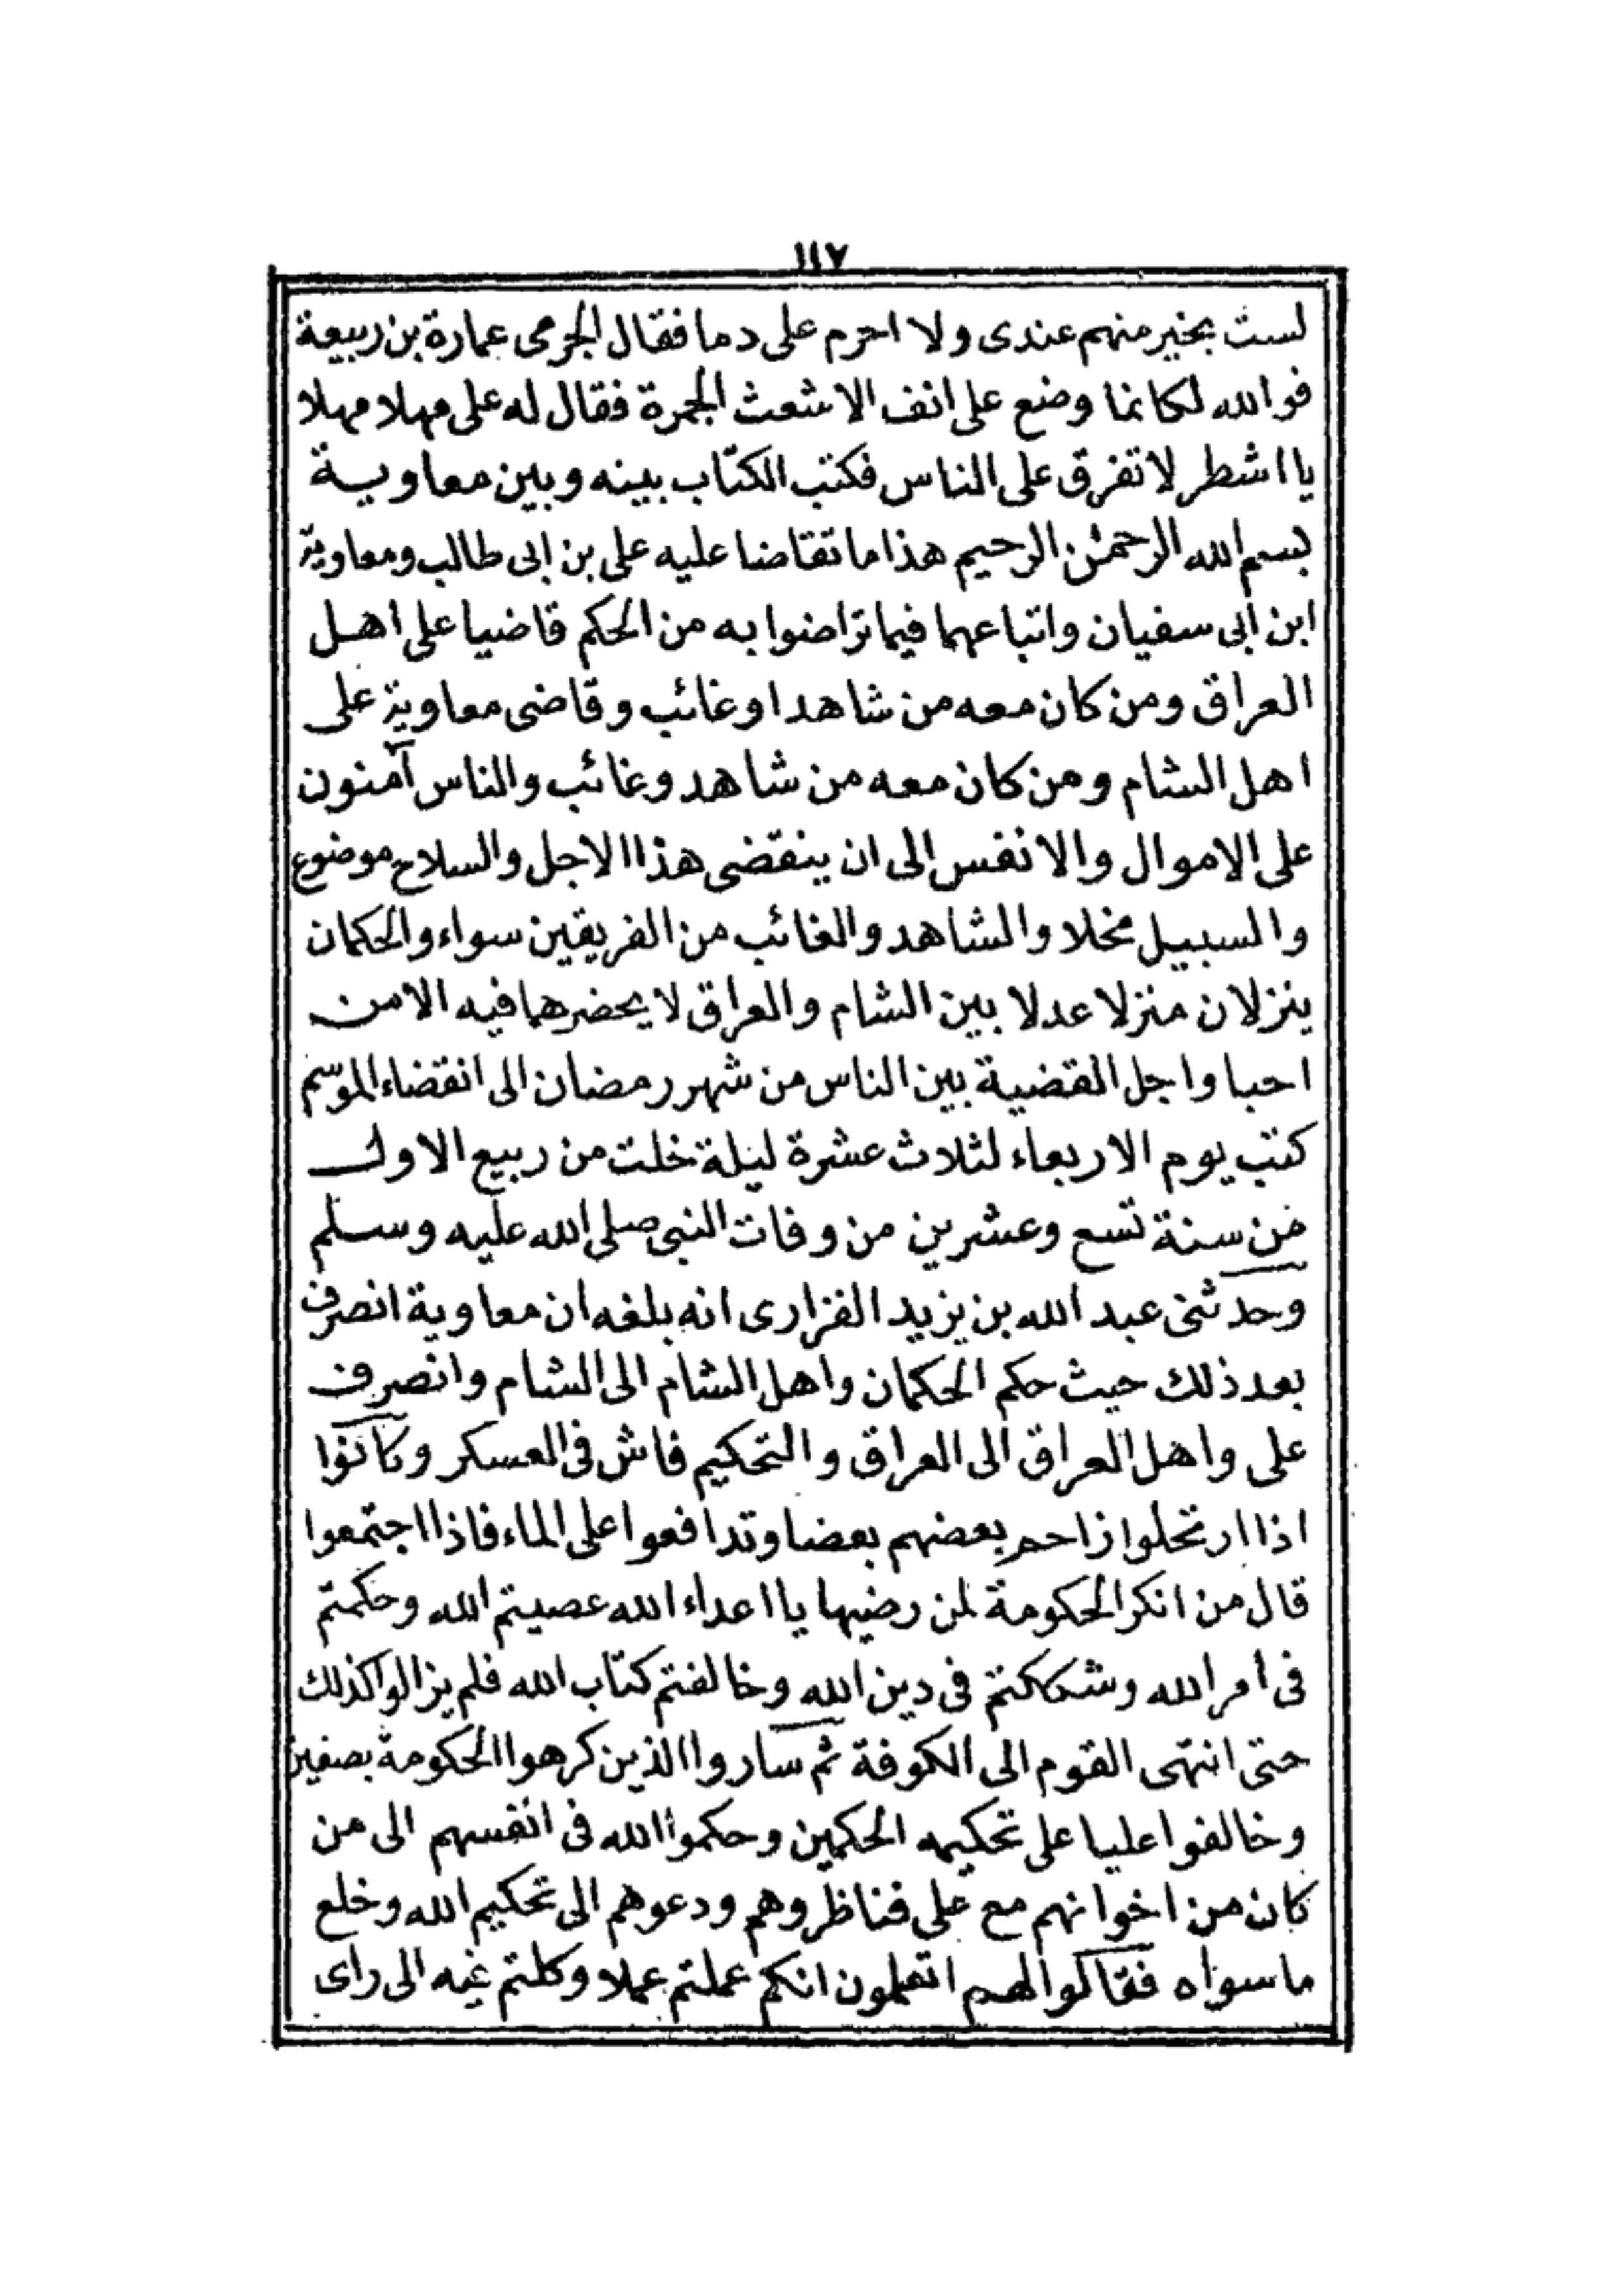 ١١٧
لست بخير منهم عندى ولا احرم على دما فقال الجرمى عمارة بن ربيعة
فوالله لكانما وضع على انف الاشعث الجمرة فقال له على مهلا مهلا
يا اشطر لا تفرق على الناس فكتب الكتاب بينه وبين معاوية
بسم الله الرحمٰن الرحيم هذا ما تقاضا عليه على بن ابى طالب ومعاوية
ابن ابى سفيان واتباعهما فيما تراضوا به من الحكم قاضيا على اهل
العراق ومن كان معه من شاهد او غائب وقاضى معاوية على
اهل الشام ومن كان معه من شاهد وغائب والناس آمنون
على الاموال والانفس الى ان ينقضى هذا الاجل والسلاح موضوع
والسبيل مخلا والشاهد والغائب من الفريقين سواء والحكمان
ينزلان منزلا عدلا بين الشام والعراق لا يحضرهما فيه الا من
احبا واجل القضية بين الناس من شهر رمضان الى انقضاء الموسم
كتب يوم الاربعاء لثلاث عشرة ليلة خلت من ربيع الاول
من سنة تسع وعشرين من وفات النبى صلى الله عليه وسلم
وحدثنى عبد الله بن يزيد الفزارى انه بلغه ان معاوية انصرف
بعد ذلك حيث حكم الحكمان واهل الشام الى الشام وانصرف
على واهل العراق الى العراق والتحكيم فاش فى العسكر وكانوا
اذا ارتحلوا زاحم بعضهم بعضا وتدافعوا على الماء فاذا اجتمعوا
قال من انكر الحكومة لمن رضيها يا اعداء الله عصيتم الله وحكمتم
فى امر الله وشككتم فى دين الله وخالفتم كتاب الله فلم يزالوا كذلك
حتى انتهى القوم الى الكوفة ثم ساروا الذين كرهوا الحكومة بصفين
وخالفوا عليا على تحكيمه الحكمين وحكموا الله فى انفسهم الى من
كان من اخوانهم مع على فناظروهم ودعوهم الى تحكيم الله وخلع
ما سواه فقالوا لهم اتعلمون انكم عملتم عملا وكلتم فيه الى راى